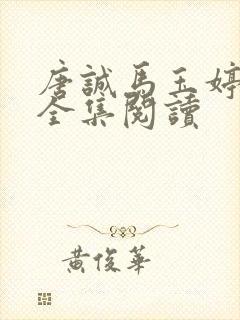 唐誠馬玉婷
全集閱讀
黃俊華